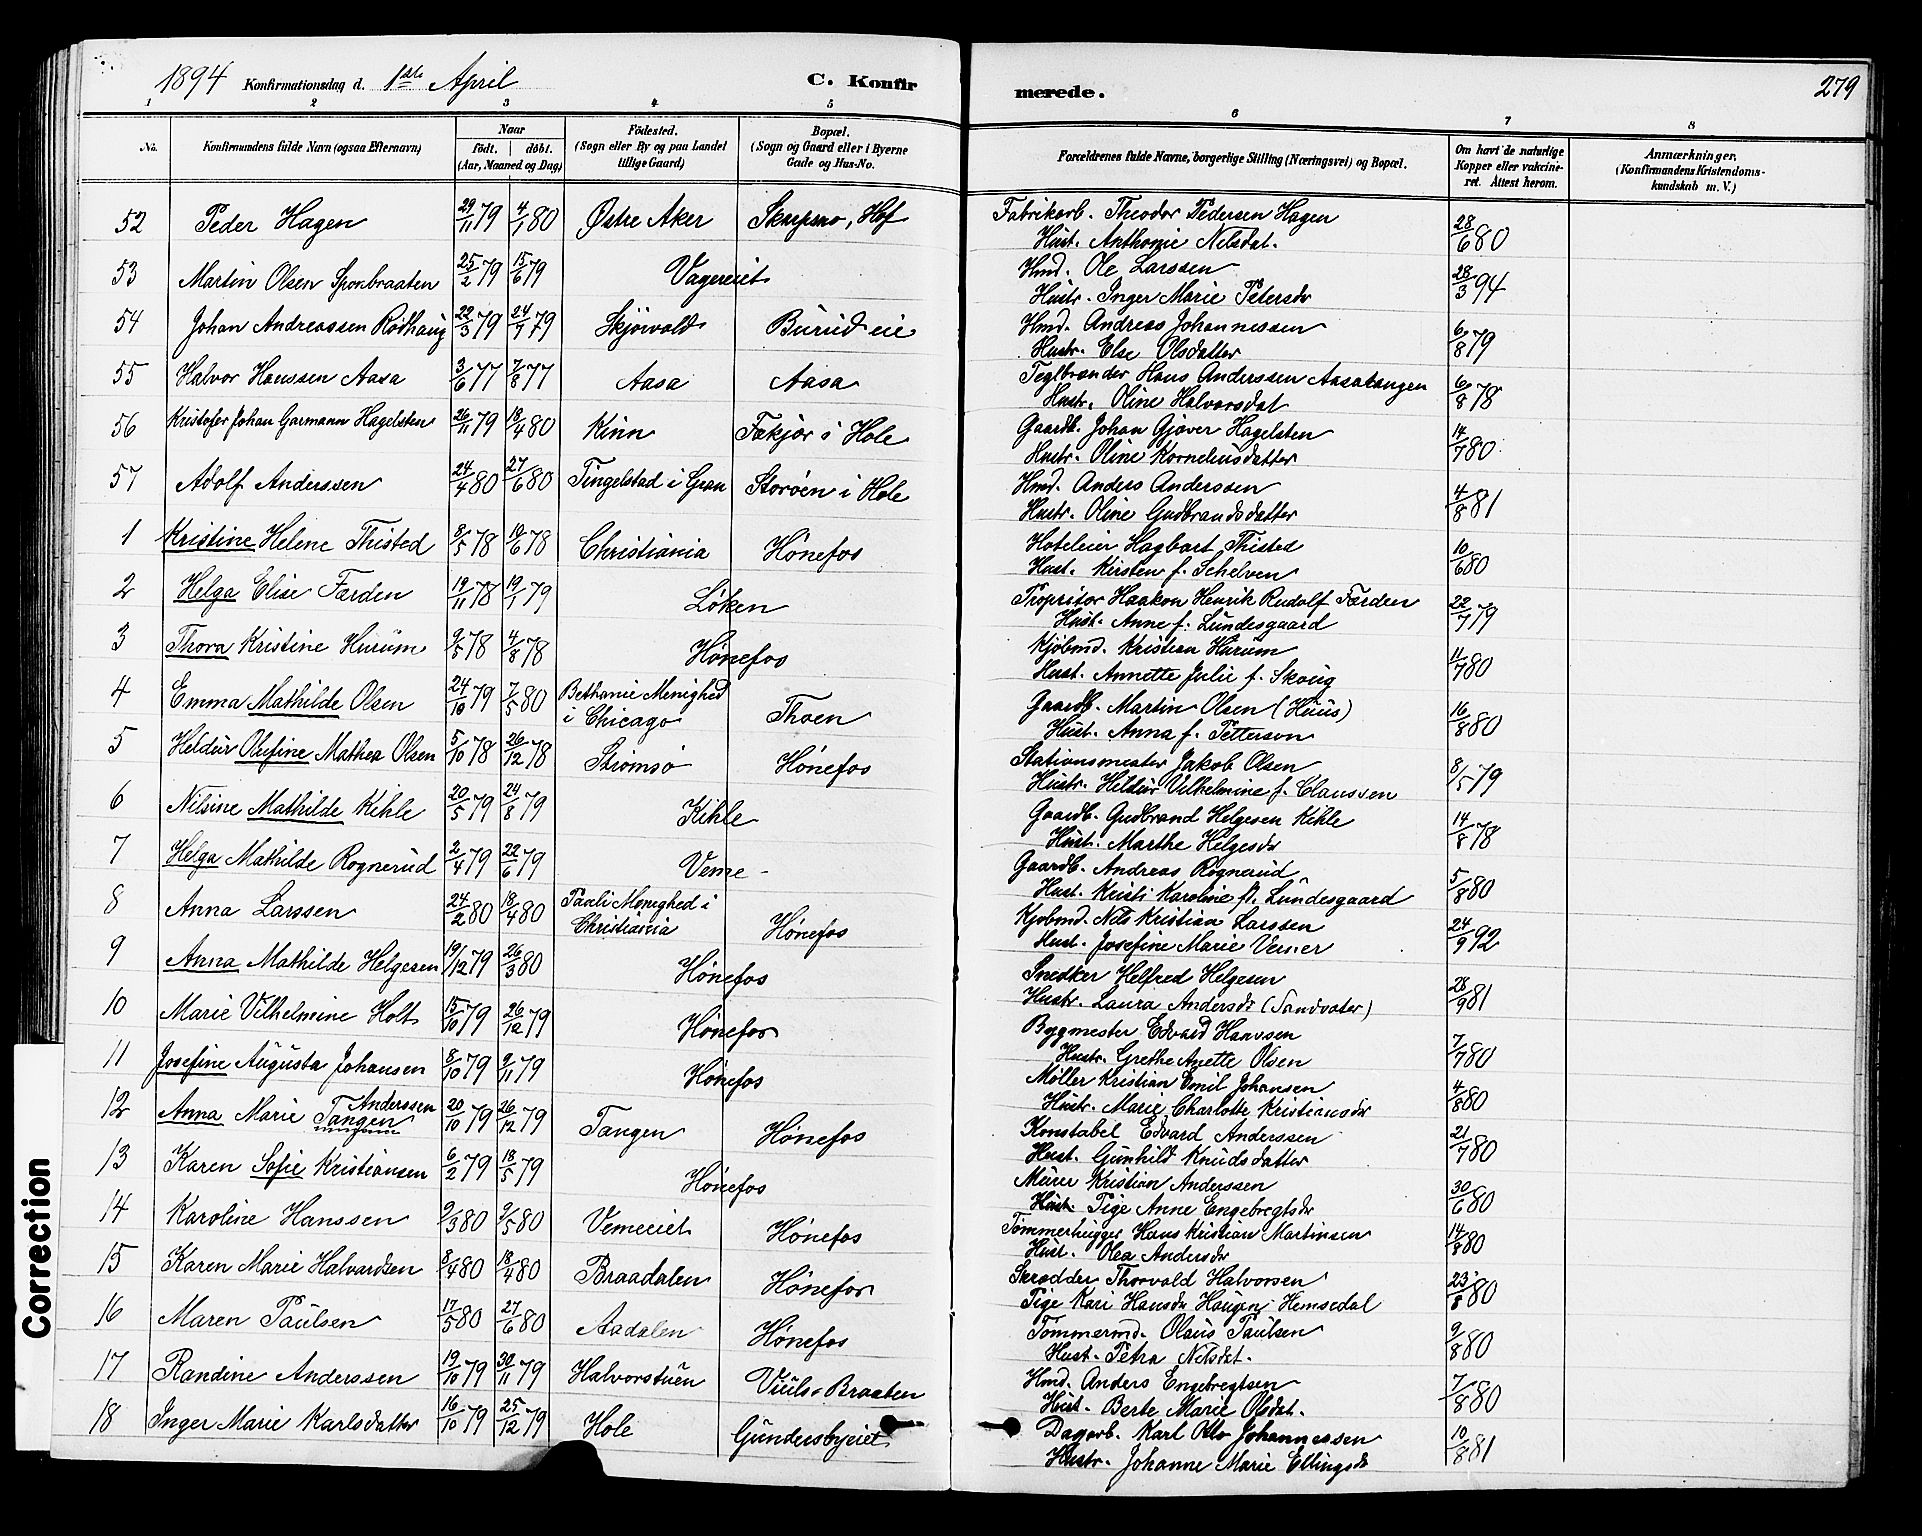 1894 Konfirmationsdag d. 1ste April C. Konfirmerede. 279
1 2 3 4 5 6 7 8
No. Konfirmandens fulde Navn (ogsaa Efternavn) Naar født. døbt. (Aar, Maaned og Dag) Fødested. (Sogn eller By og paa Landet tillige Gaard) Bopæl. (Sogn og Gaard eller i Byerne Gade og Hus-No. Forældrenes fulde Navne, borgerlige Stilling (Næringsvei) og Bopæl. Om havt de naturlige Kopper eller vakcineret. Attest herom. Anmærkninger. (Konfirmandens Kristendomskundskab m. V.)
52 Peder Hagen 29/11 79 4/1 80 Østre Aker Hof Fabrikarb. Theodor Pedersen Hagen
Hust. Anthonie Nilsdat. 28/6 80
53 Martin Olsen Sponbraaten 25/2 79 15/6 79 Vagereiet Hmd. Ole Larssen
Hustr. Inger Marie Petersdr 28/3 94
54 Johan Andreassen Rødhaug 22/3 79 24/7 79 Skjørvold Burud eie Hmd. Andreas Johannessen
Hustr. Else Olsdatter 6/8 79
55 Halvor Hanssen Aasa 3/6 77 7/8 77 Aasa Aasa Teglbrænder Hans Anderssen Aasatangen
Hustr. Oline Halvorsdat 6/8 78
56 Kristofer Johan Garmann Hagelsten 26/11 79 18/4 80 Kinn Fækjær i Hole Gaardb. Johan Gjøver Hagelsten
Hustr. Oline Korneliusdatter 14/7 80
57 Adolf Anderssen 24/4 80 27/6 80 Tingelstad i Gran Storøen i Hole Hmd. Anders Anderssen
Hustr. Oline Gudbrandsdatter 4/8 81
1 Kristine Helene Thisted 8/5 78 19/6 78 Christiania Hønefos Hoteleier Hagbart Thisted
Hust. Kirsten f. Schelven 10/6 80
2 Helga Elise Færden 19/11 78 19/1 79 Løken Propritær Haakon Henrik Rudolf Færden
Hust. Anne f. Lundesgaard 22/7 79
3 Thora Kristine Hurum 9/5 78 4/8 78 Hønefos Kjøbmd. Kristian Hurum
Hust. Annette Julie f. Skoug 11/7 80
4 Emma Mathilde Olsen 24/10 79 7/5 80 Bethanie Menighed
i Chicago Thoen Gaardb. Martin Olsen (Huus)
Hust. Anna f. Petterson 16/8 80
5 Heldur Olufine Mathea Olsen 5/10 78 26/12 78 Strømsø Hønefos Stationsmester Jakob Olsen
Hustr. Heldur Vilhelmine f. Claussen 8/5 79
6 Nilsine Mathilde Kihle 20/5 79 24/8 79 Kihle Gaardb. Gudbrand Helgesen Kihle
Hust. Marthe Helgesdr 14/8 78
7 Helga Mathilde Rognerud 2/4 79 22/6 79 Veme Gaardb. Andreas Rognerud
Hust. Kristi Karoline f. Lundesgaard 5/8 80
8 Anna Larssen 24/2 80 18/4 80 Pauli Menighed i
Christiania Hønefos Kjøbmd. Nils Kristian Larssen
Hust. Josefine Marie Verner 24/9 92
9 Anna Mathilde Helgesen 19/12 79 26/3 80 Hønefos Snedker Helfred Helgesen
Hustr. Laura Andersdr (Sandvater) 28/9 81
10 Marie Vilhelmine Holt 15/10 79 26/12 79 Hønefos Bygmester Edvard Hanssen
Hustr. Grethe Anette Olsen 7/7 80
11 Josefine Augusta Johansen 8/10 79 9/11 79 Hønefos Møller Kristian Emil Johansen
Hustr. Marie Charlotte Kristiansdr 4/8 80
12 Anna Marie Tangen Anderssen 20/10 79 26/12 79 Tangen Hønefos Konstabel Edvard Anderssen
Hust. Gunhild Knudsdatter 21/7 80
13 Karen Sofie Kristiansen 6/2 79 18/5 79 Hønefos Murer Kristian Anderssen
Hust. Pige Anne Engebregtsdr 30/6 80
14 Karoline Hanssen 9/3 80 9/5 80 Vemeeiet Hønefos Tømmerhugger Hans Kristian Martinsen
Hust. Olea Andersdr 14/8 80
15 Karen Marie Halvardsen 8/4 80 18/4 80 Braadalen Hønefos Skrædder Thorvald Halvorsen
Pige Kari Hansdr Haugen, Hemsedal 23/8 80
16 Maren Paulsen 17/5 80 27/6 80 Aadalen Hønefos Tømmermd. Olaus Paulsen
Hust. Petra Nilsdat. 9/8 80
17 Randine Anderssen 19/10 79 30/11 79 Halvorstuen Viuls-Braaten Hmd. Anders Engebregtsen
Hust. Berte Marie Olsdat. 7/8 80
18 Inger Marie Karlsdatter 16/10 79 25/12 79 Hole Gundersbyeiet Dagarb. Karl Otto Johannessen
Hustr. Johanne Marie Ellingsdr 10/8 81
Correction